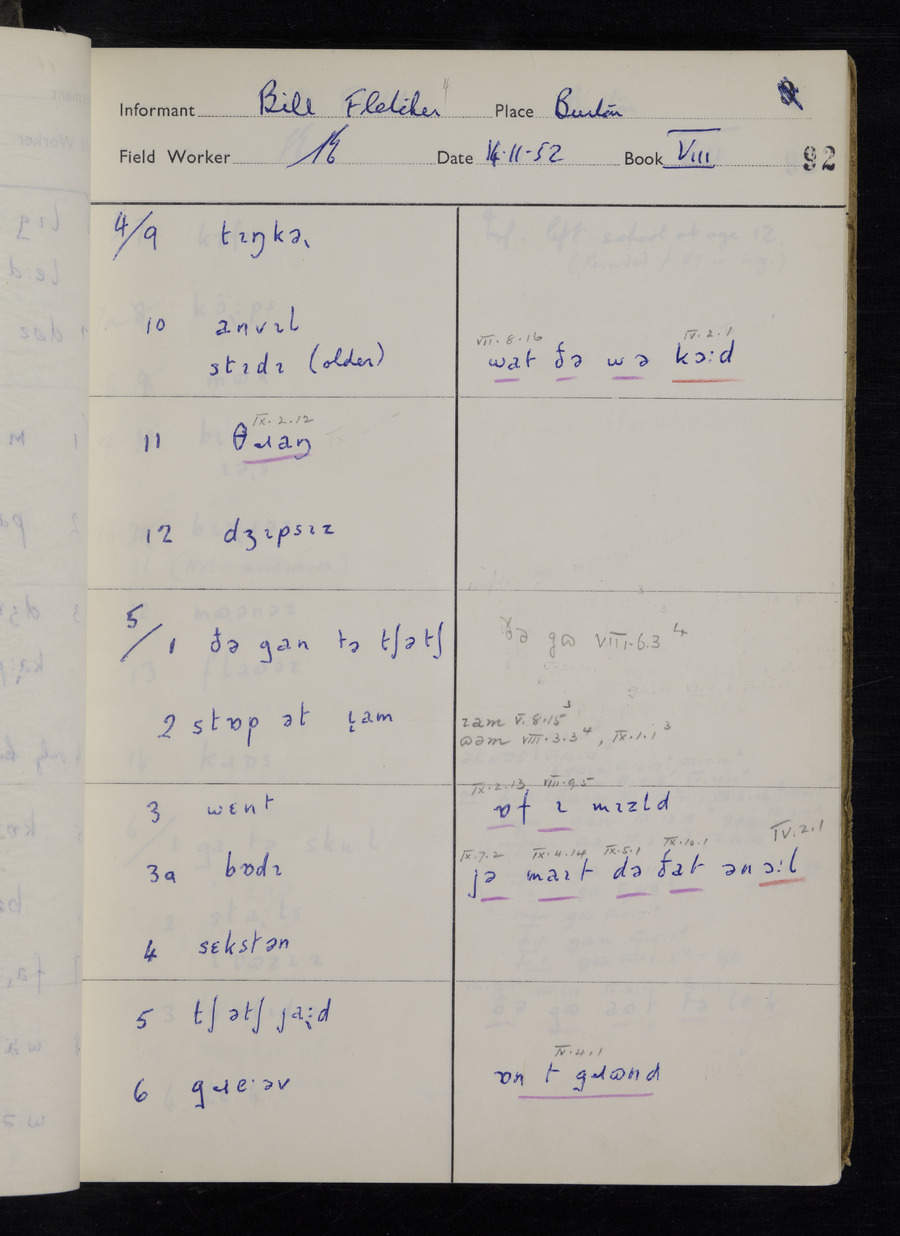 Informant Bill Fletcher 4 Place Burton
Field Worker Date 14·11·52 Book VIII 92
4/9 tɪŋkə˞
10 anvɪl
VII.8.16 IV.2.1
stɪdɪ (older) wat ðə wə kɔːd
IX.2.12
11 θɹaŋ
12 dʒɪpsɪz
5/1 ðə gan tə tʃətʃ ðə gɷ VIII.6.3 4
2 stɒp ət i̯am ɪam V.8.15 3
ɷəm VIII.3.3 4, IX.1.1 3
IX.2.13, VIII.9.5
3 wɛnt ɒf ɪ mɪzld
IX.7.2 IX.4.14 IX.5.1 IX.10.1 IV.2.1
3a bɒdɪ jə maɪt də ðat ən ɔːl
4 sɛkstən
5 tʃətʃ jaːd
IV.4.1
6 gɹeːəv ɒn t gɹɷnd